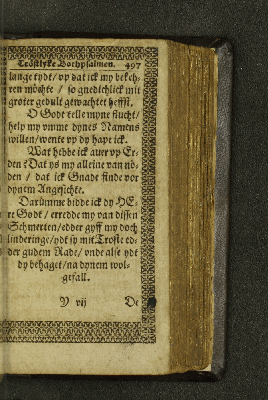 Tröstlyke Bothpsalmen. 497
lange tydt/ vp dat ick my bekeh-
ren möchte / so gnedichlick mit
groter gedult gewachtet heffst.
O Godt telle myne flucht/
help my vmme dynes Namens
willen/ wente vp dy hape ick.
Wat hebbe ick auer vp Er-
den? Dat ys my alleine van nö-
den / dat ick Gnade finde vor
dynem Angesichte.
Darümme bidde ick dy HE-
re Godt / erredde my van dissen
Schmerten/ edder gyff my doch
linderinge/ ydt sy mit Troste ed-
der gudem Rade/ vnde alse ydt
dy behaget/ na dynem wol-
gefall.
Y vij De